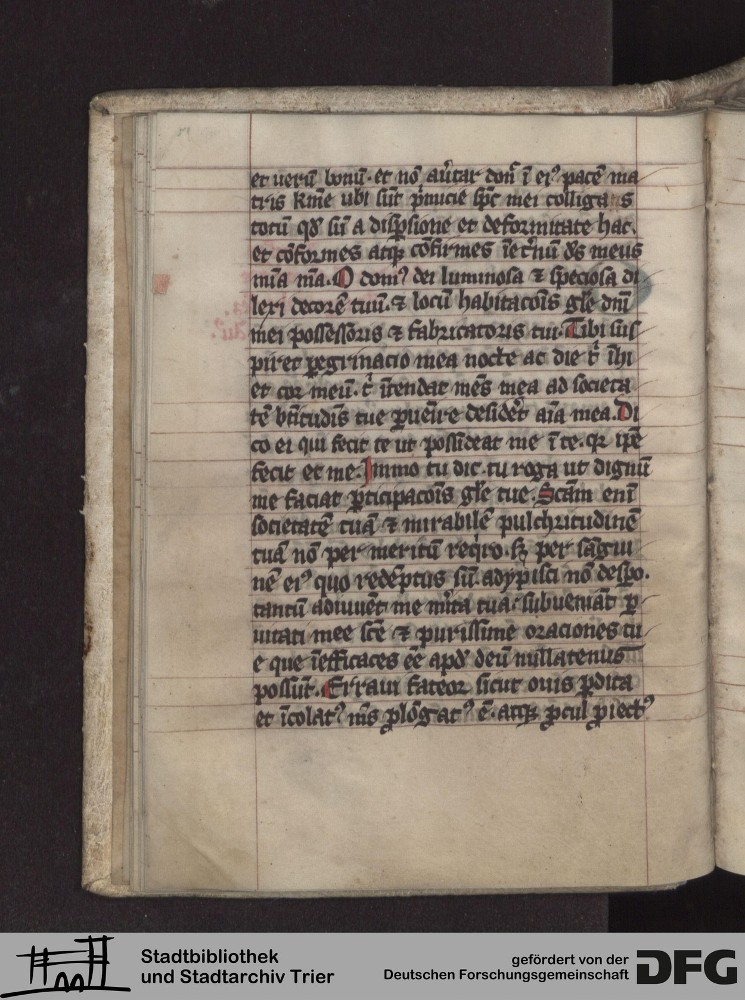 et uerū bonū. et nō au̾tar don̄ ī ei⁹ pacē ma
tris k̄me ubi sūt p̄micie sp̄c mei colligas
totū qd̾ sū a disp̱sione et deformitate hac.
et cōformes atq̃ cōfirmes īet̾nū ds̄ meus
mīa m̄a. O dom⁹ dei luminosa ⁊ speciosa di
lexi decorē tuū. ⁊ locū habitacōis gl̄e dn̄i
mei possessoris ⁊ fabricatoris tui. Tibi sus
piret p̱egrinacio mea nocte ac die t̾ īhi
et cor meū. t̾ ītendat mēs mea ad societa
tē bt̄itudīs tue p̱uēire desider̾ aīa mea. Di
co ei qui fecit te ut possideat me ī te. qr ip̄e
fecit et me. Immo tu dic. tu roga ut dignū
me faciat p̱ticipacōis gl̄e tue. Scām enī
societatē tuā ⁊ mirabilē pulchritudinē
tuā nō per meritū req̾ro. sꝫ per sāgui
nē ei⁹ quo redēptus sū. adypisci nō despo.
tantū adiuuēt me m̾ita tua. subueniāt p̱
uitati mee sc̄e ⁊ purissime oraciones tu
e que īefficaces ēe apd̾ deū nullatenus
possūt. Erraui fateor sicut ouis p̱dita
et īcolat⁹ m̄s plōgat⁹ ē. atq̃ p̱cul p̱iect⁹
Stadtbibliothek
und Stadtarchiv Trier
gefördert von der
Deutschen Forschungsgemeinschaft
DFG